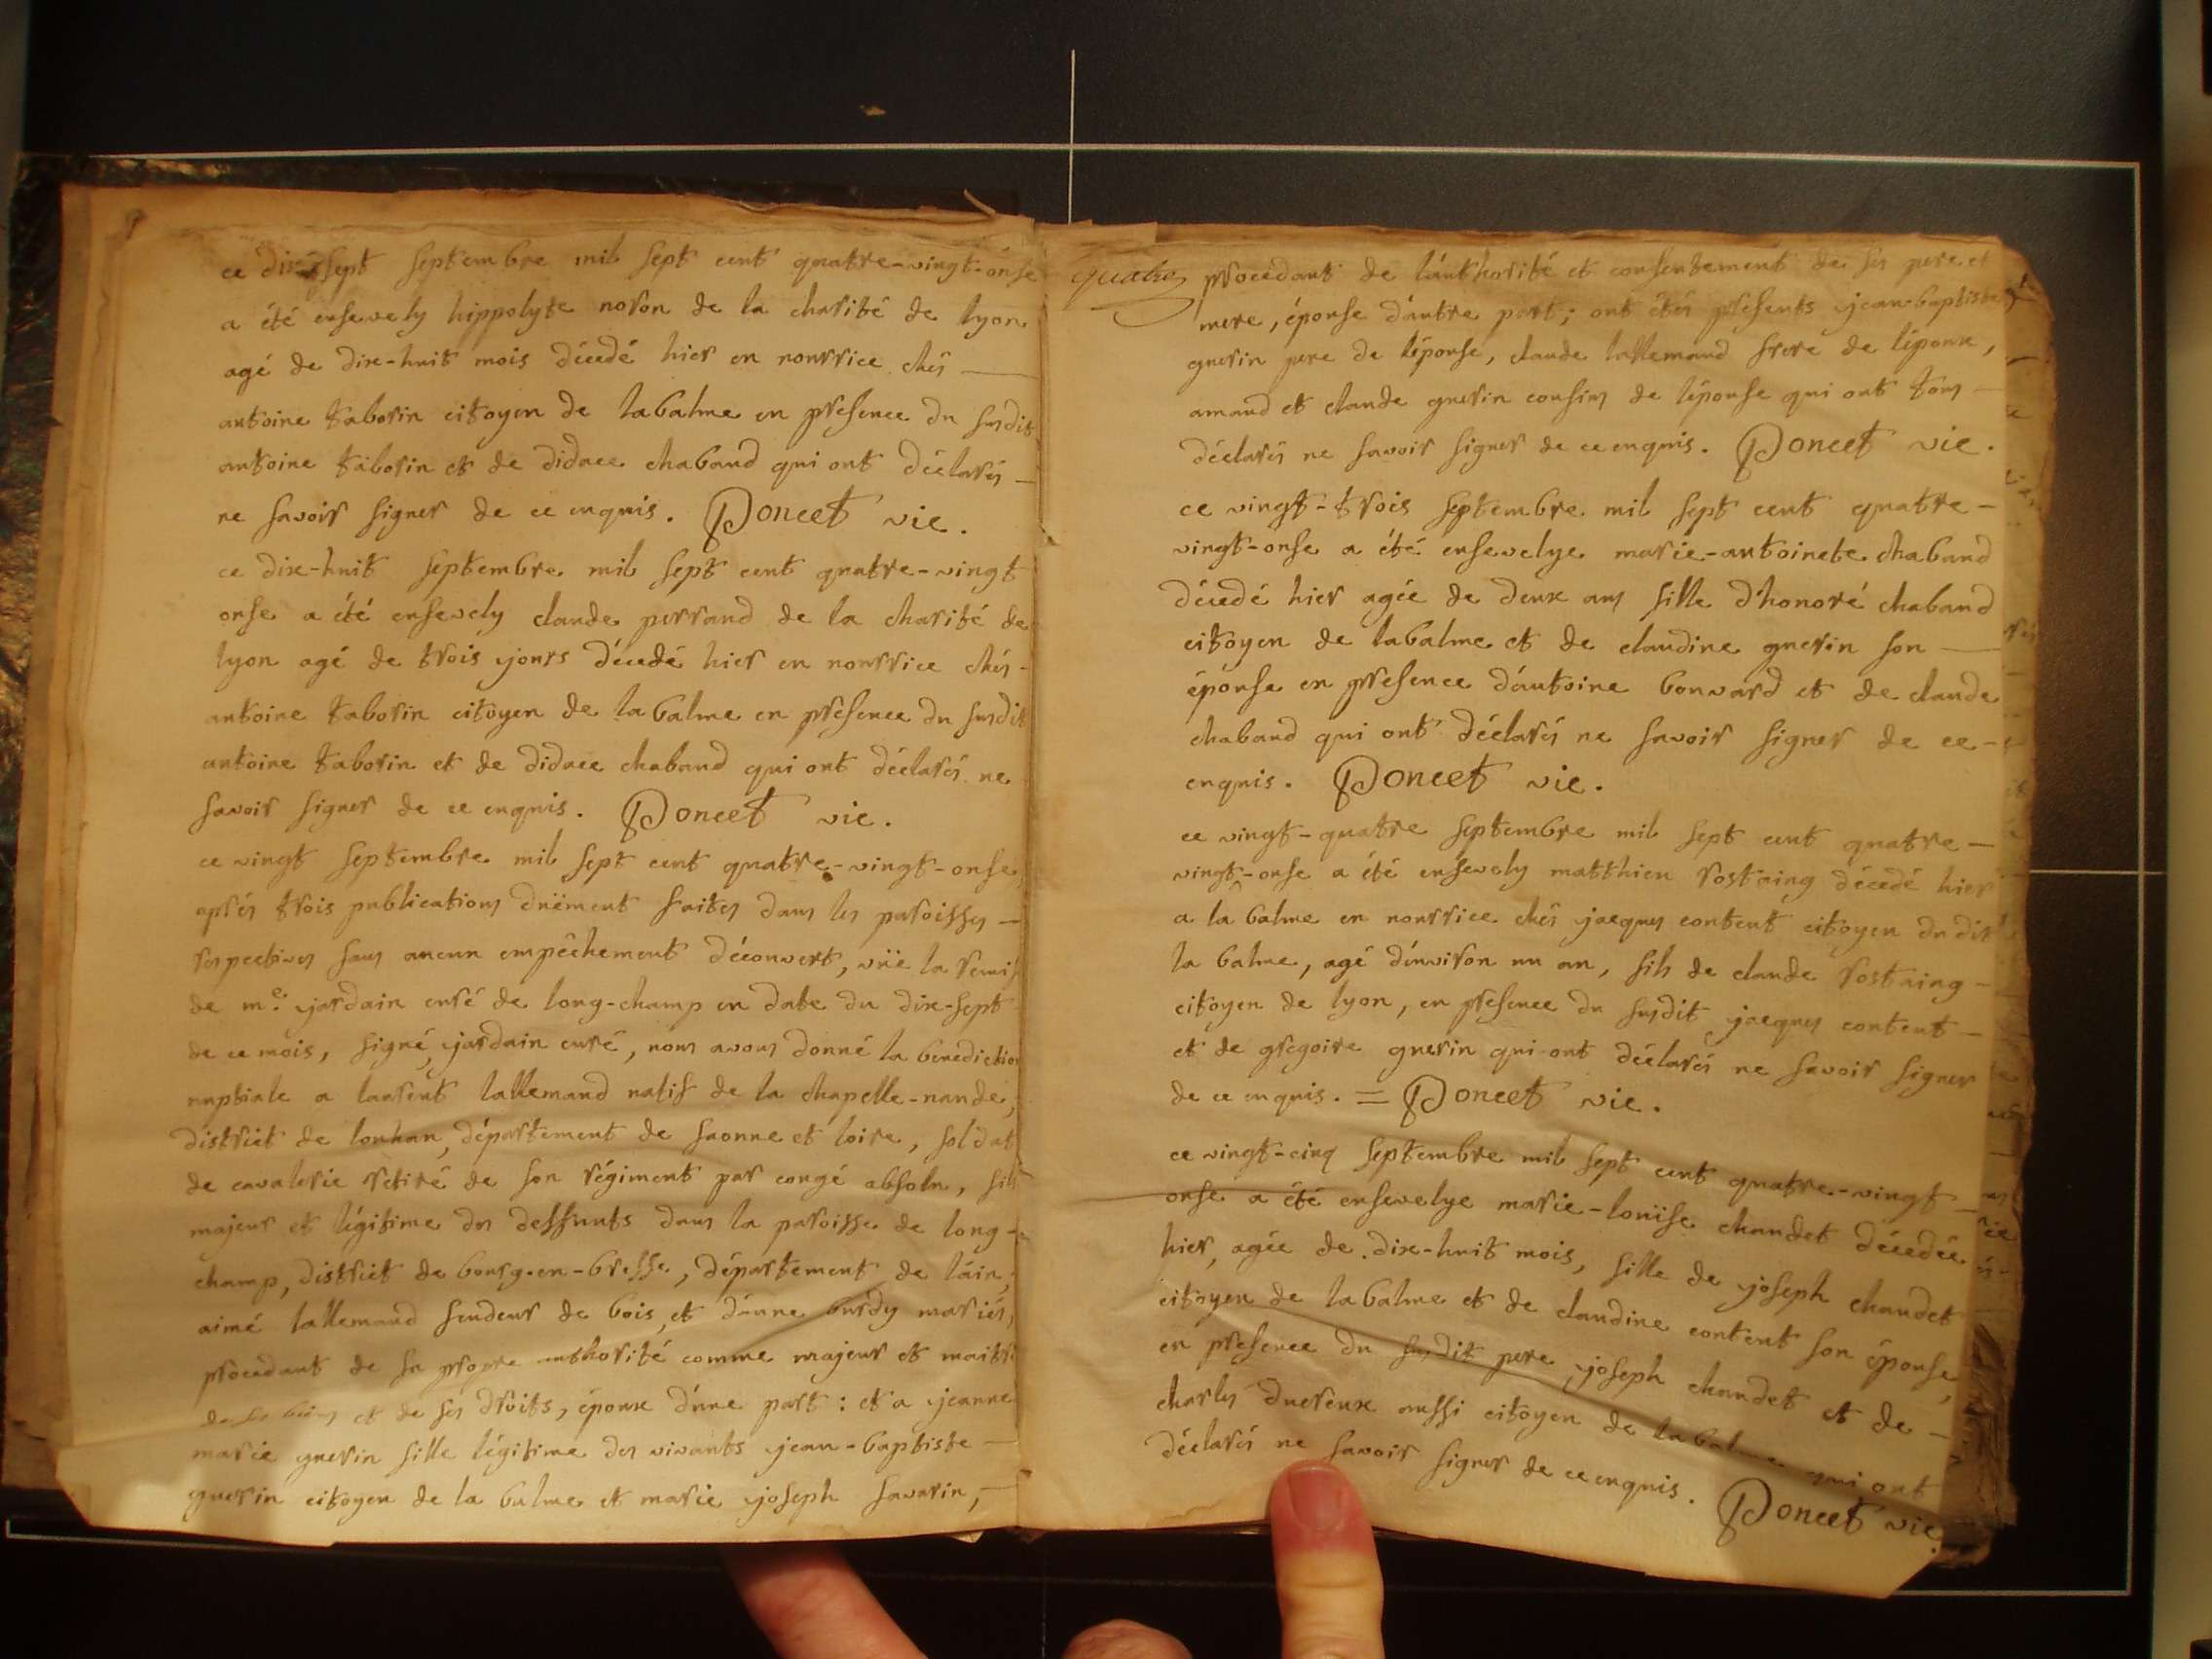 ce dix sept septembre mil sept cent quatre-vingt-onse
a été ensevely hippolyte noron de la charité de lyon
agé de dix-huit mois décedé hier en nourrice chés
antoine taborin citoyen de labalme en presence du susdit
antoine taborin et de didace chabaud qui ont déclarés
ne savoir signer de ce enquis. Poncet vic.
ce dix-huit septembre mil sept cent quatre-vingt
onse a été ensevely claude perraud de la charité de
lyon agé de trois jours décedé hier en nourrice chés
antoine taborin citoyen de labalme en presence du susdit
antoine taborin et de didace chabaud qui ont déclarés ne
savoir signer de ce enquis. Poncet vic.
ce vingt septembre mil sept cent quatre-vingt-onse,
aprés trois publications düement faites dans les paroisses
respectives sans aucun empêchement découvert, vüe la remise
de me. jardain curé de long-champ en date du dix-sept
de ce mois, signé, jardain curé, nous avons donné la benediction
nuptiale a laurent lallemand natif de la chapelle-naude,
district de louhan, département de saonne et loire, soldat
de cavalerie retiré de son régiment par congé absolu, fils
majeur et légitime des deffunts dans la paroisse de long-
champ, district de bourg-en-bresse, département de láin,
aimé lallemand fendeur de bois, et dánne burdy mariés,
procedant de sa propre authorité comme majeur et maitre
de ses biens et de ses droits, époux d'une part : et a jeanne
marie guerin fille légitime des vivants jean-baptiste
guerin citoyen de la balme et marie joseph savarin,
quatre procedant de láuthorité et consentement de ses pere et
mere, épouse dáutre part ; ont étés présents jean-baptiste
guerin pere de lépouse, claude lallemand frere de lépoux,
amand et claude guerin cousins de lépouse qui ont tous
déclarés ne savoir signer de ce enquis. Poncet vic.
ce vingt-trois septembre mil sept cent quatre-
vingt-onse a été ensevelye marie-antoinete chabaud
décedé hier agée de deux ans fille d'honoré chabaud
citoyen de labalme et de claudine guerin son
épouse en presence dántoine bonvard et de claude
chabaud qui ont déclarés ne savoir signer de ce
enquis. Poncet vic.
ce vingt-quatre septembre mil sept cent quatre-
vingt-onse a été ensevely matthieu rostaing décedé hier
a la balme en nourrice chés jacques content citoyen du dit
la balme, agé dénviron un an, fils de claude rostaing
citoyen de lyon, en presence du susdit jacques content
et de gregoire guerin qui ont déclarés ne savoir signer
de ce enquis. = Poncet vic.
ce vingt-cinq septembre mil sept cent quatre-vingt
onse a été ensevelye marie-loüise chaudet décedée
hier, agée de dix-huit mois, fille de joseph chaudet
citoyen de labalme et de claudine content son épouse,
en presence du susdit pere joseph chaudet et de
charles ducreux aussi citoyen de labalme qui ont
déclarés ne savoir signer de ce enquis. Poncet vic.